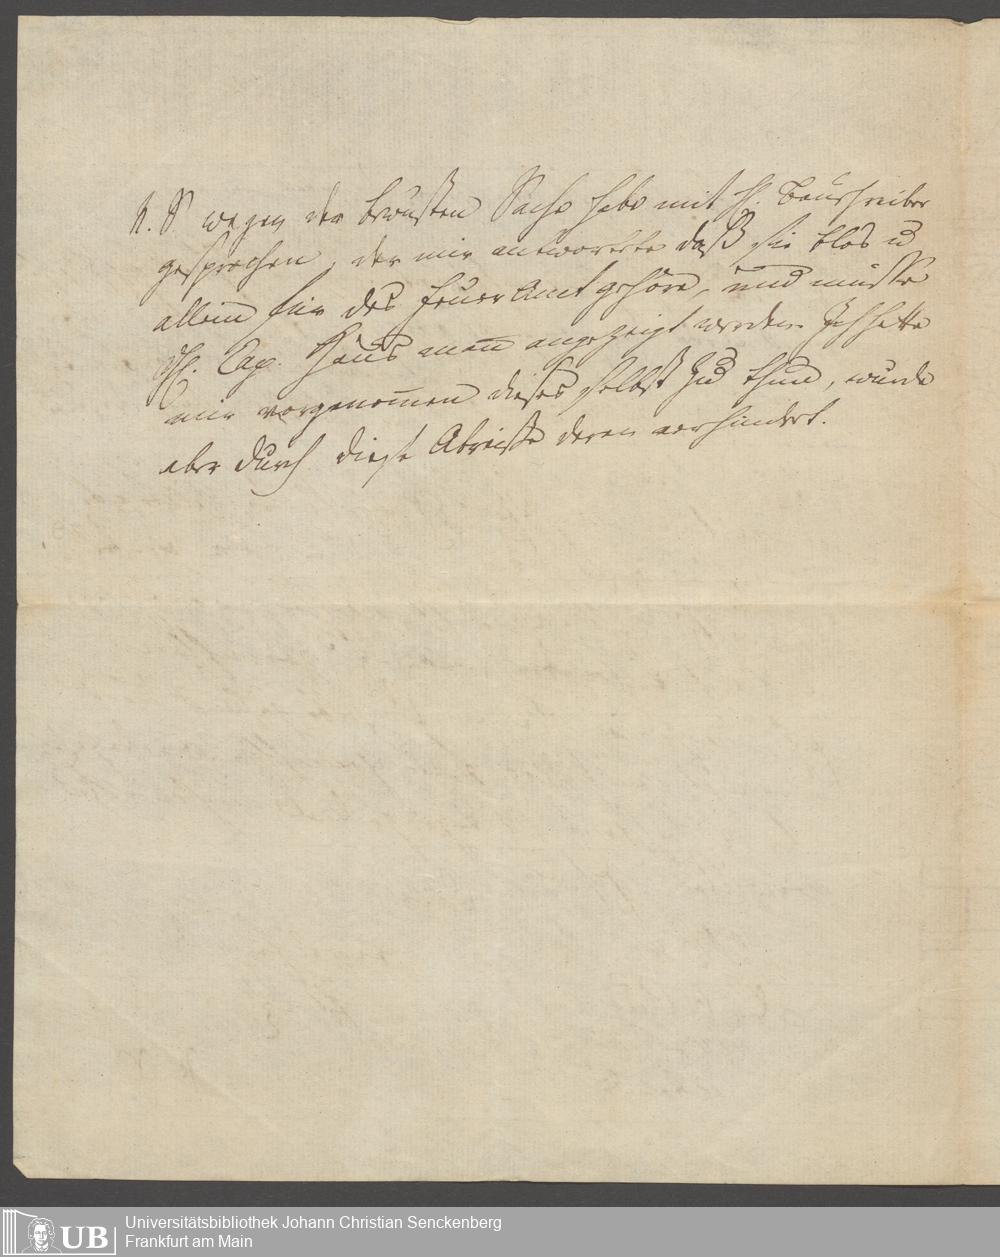 N. S. wegen der bewusten Sache habe mit H. Bauschreiber
gesprochen, der mir antwortete daß sie blos u
allein für das Feuer Amt gehöre, und müsse
H. Cap. Hausmann angezeigt werden. Ich hatte
mir vorgenom̄en dieses selbst zu thun, wurde
aber durch diese Abreisse daran verhindert.
UB
Universitätsbibliothek Johann Christian Senckenberg
Frankfurt am Main